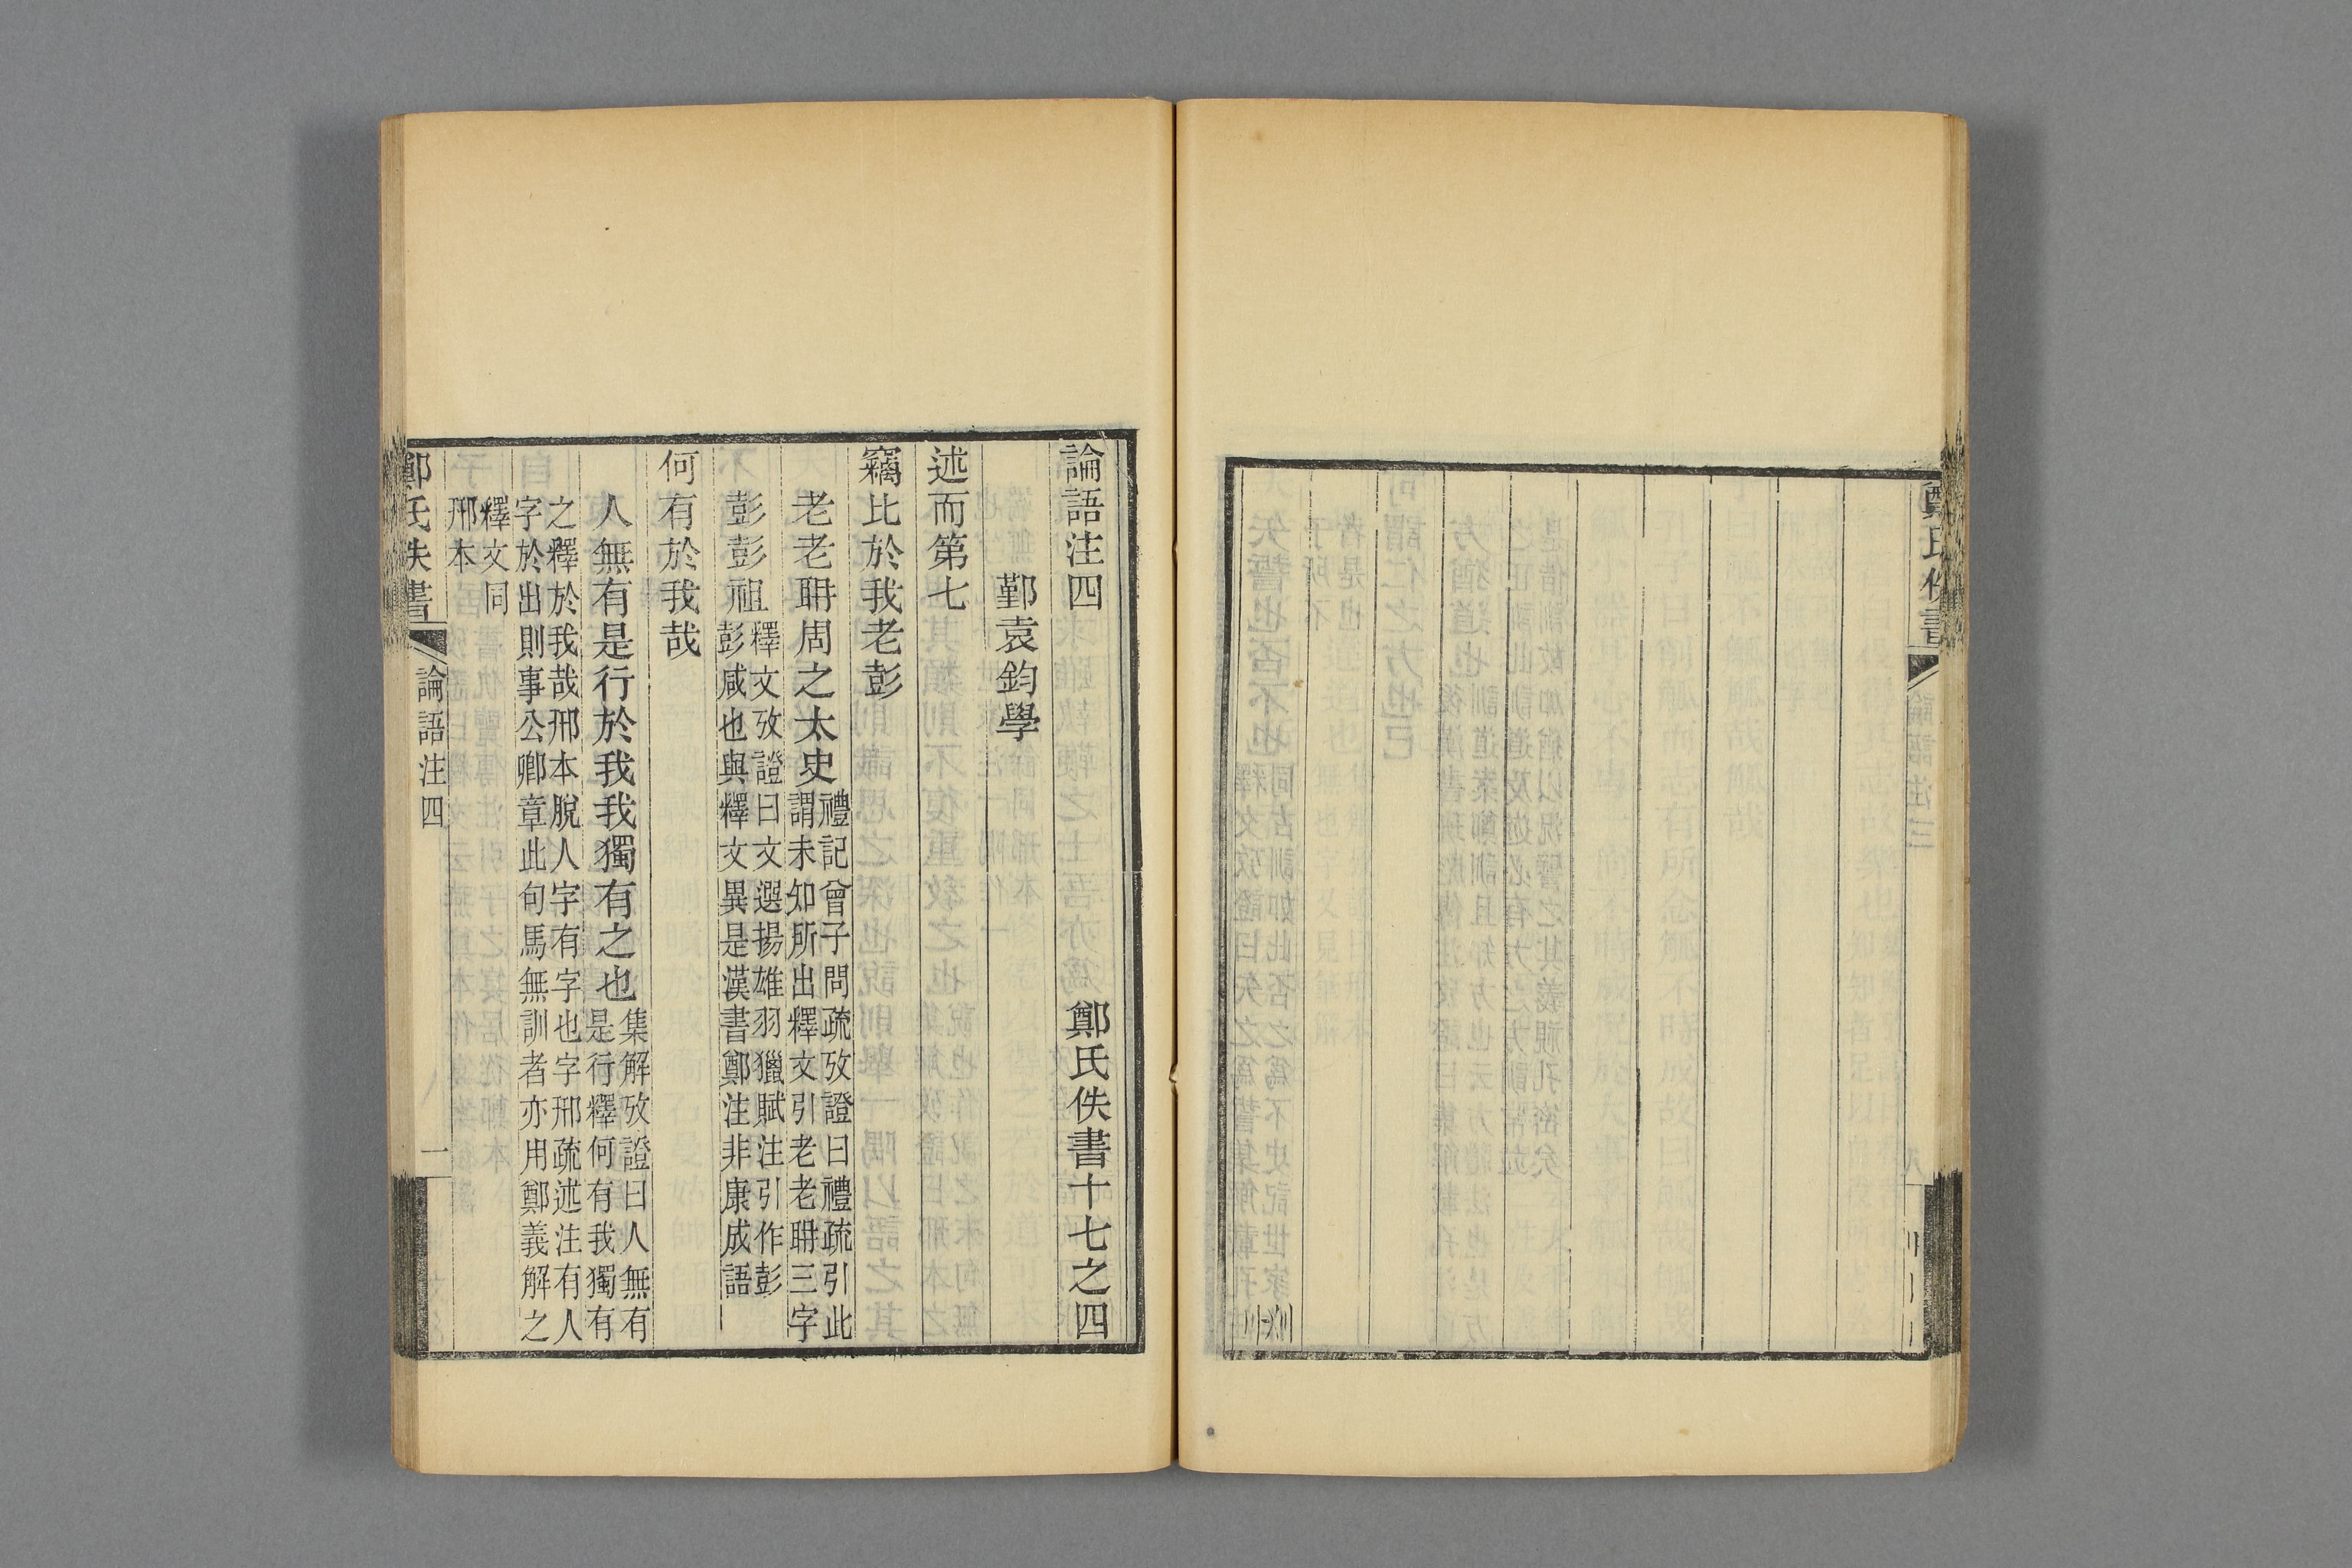 論語注四　鄭氏佚書十七之四
鄞袁鈞學
述而第七
竊比於我老彭
老老聃周之太史禮記曾子問疏攷證曰禮疏引此
謂未知所出釋文引老老聃三字
彭彭祖釋文攷證曰文選揚雄羽獵賦注引作彭
彭咸也與釋文異是漢書鄭注非康成語
何有於我哉
人無有是行於我我獨有之也集解攷證曰人無有
是行釋何有我獨有
之釋於我哉邢本脫人字有字也字邢疏述注有人
字於出則事公卿章此句馬無訓者亦用鄭義解之
釋文同
邢本
鄭氏佚書
論語注四
一